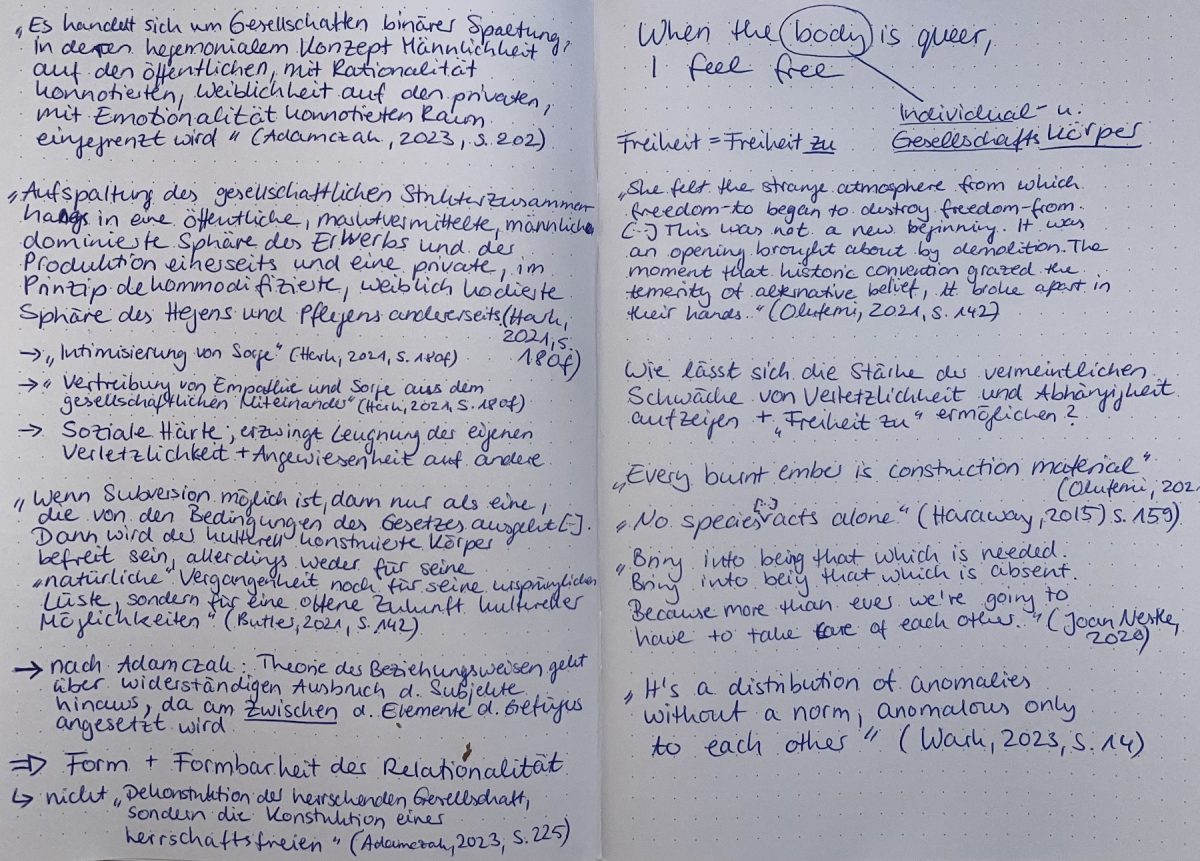 „Es handelt sich um Gesellschaften binärer Spaltung,
in deren hegemonialem Konzept Männlichkeit
auf den öffentlichen, mit Rationalität
konnotierten, Weiblichkeit auf den privaten,
mit Emotionalität konnotierten Raum
eingegrenzt wird" (Adamczak, 2023, S. 202)
„Aufspaltung des gesellschaftlichen Strukturzusammen-
hangs in eine öffentliche, marktvermittelte, männlich
dominierte Sphäre des Erwerbs und der
Produktion einerseits und eine private, im
Prinzip dekommodifizierte, weiblich kodierte
Sphäre des Hegens und Pflegens andererseits (Hark,
2021, S.
180f)
→ „Intimisierung von Sorge" (Hark, 2021, S. 180f)
→ „Vertreibung von Empathie und Sorge aus dem
gesellschaftlichen Miteinander" (Hark, 2021, S. 180f)
→ Soziale Härte, erzwingt Leugnung der eigenen
Verletzlichkeit + Angewiesenheit auf andere
„Wenn Subversion möglich ist, dann nur als eine,
die von den Bedingungen des Gesetzes ausgeht [-].
Dann wird der kulturell konstruierte Körper
befreit sein, allerdings weder für seine
„natürliche" Vergangenheit noch für seine ursprünglichen
Lüste, sondern für eine offene Zukunft kultureller
Möglichkeiten" (Butler, 2021, S. 142)
→ nach Adamczak: Theorie der Beziehungsweisen geht
über widerständigen Ausbruch d. Subjekte
hinaus, da am zwischen d. Elemente d. Gefüges
angesetzt wird
⇒ Form + Formbarkeit der Relationalität
↳ nicht „Dekonstruktion der herrschenden Gesellschaft,
sondern die Konstuktion einer
herrschaftsfreien" (Adamczak, 2023, S. 225)
When the body is queer,
I feel free
Individual- u.
Gesellschaftskörper
Freiheit = Freiheit zu
„She felt the strange atmosphere from which
freedom-to began to destroy freedom-from.
(-) This was not a new beginning. It was
an opening brought about by demolition. The
moment that historic convention grazed the
temerity of alternative belief, it broke apart in
their hands." (Olufemi, 2021, S. 142)
Wie lässt sich die Stärke der vermeintlichen
Schwäche von Verletzlichkeit und Abhängigkeit
aufzeigen + „Freiheit zu" ermöglichen?
„Every burnt ember is construction material"
(Olufemi, 202
„No species [-] acts alone" (Haraway, 2015) S. 159)
„Bring into being that which is needed.
Bring into being that which is absent.
Because more than ever we're going to
have to take care of each other.." (Joan Nestle,
2020)
„It's a distribution of anomalies
without a norm, anomalous only
to each other" (Wark, 2023, S. 14)